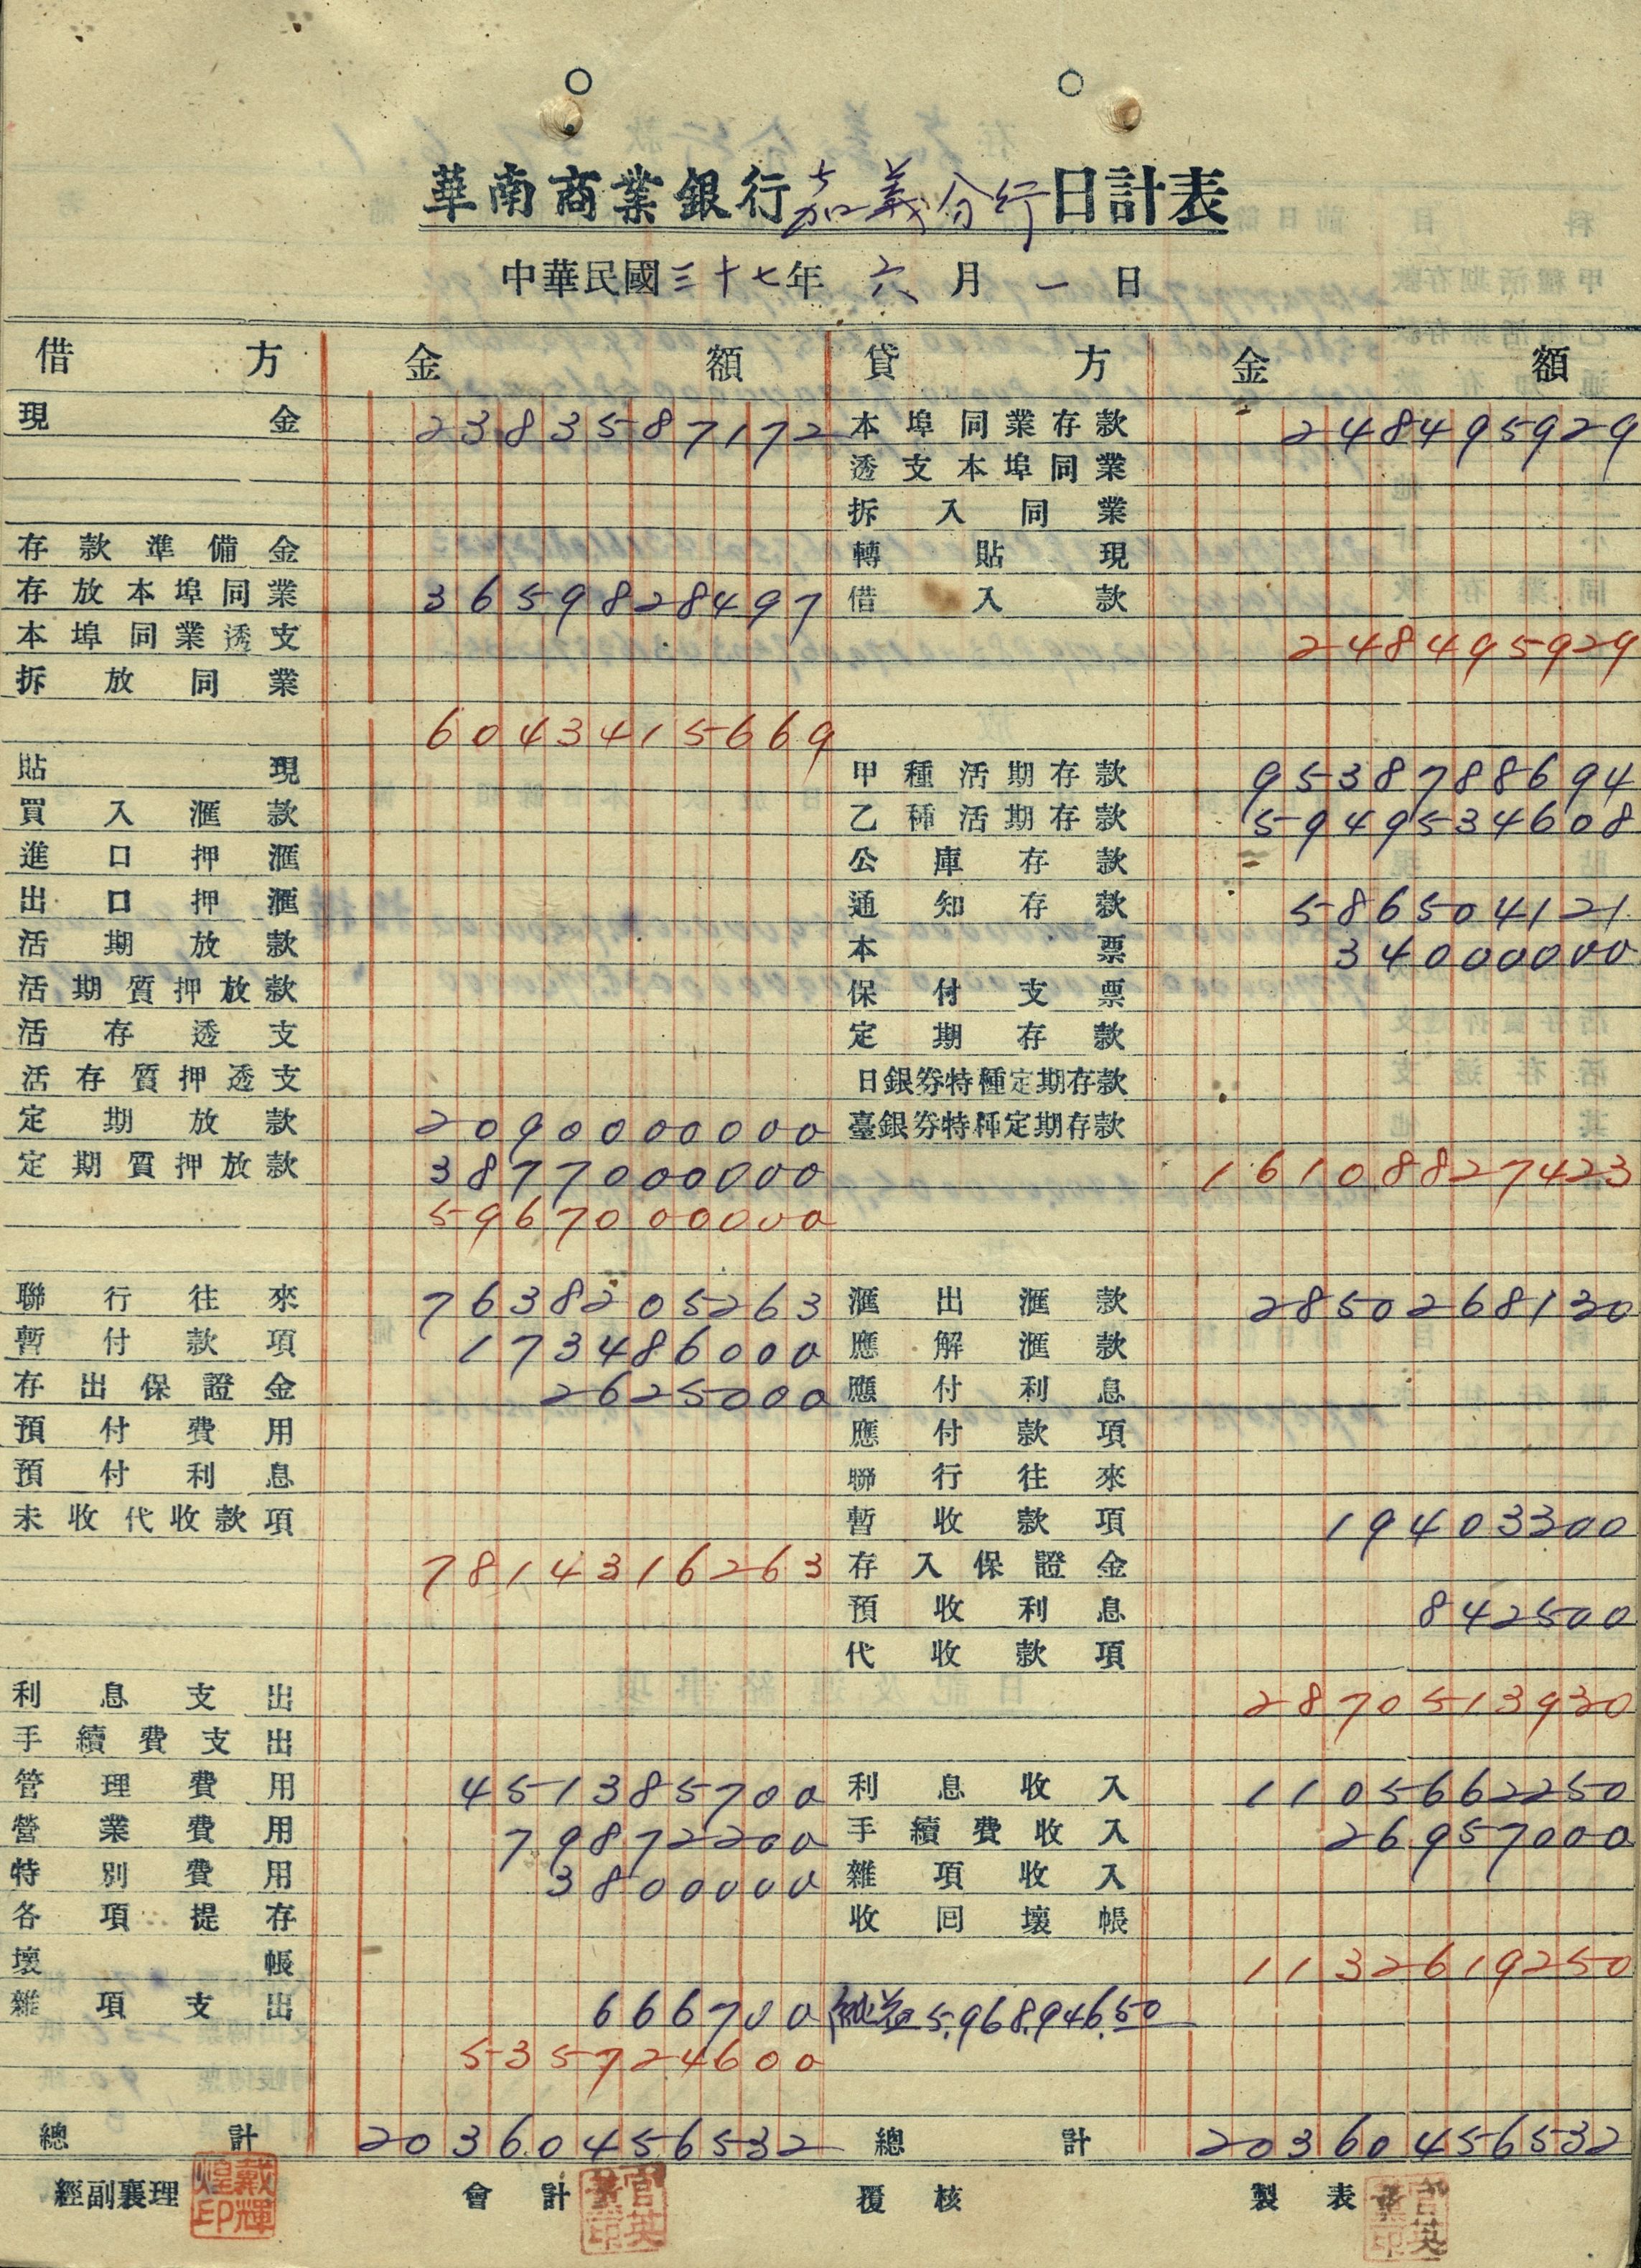 華南商業銀行嘉義分行日計表
中華民國三十七年 六月 一日
借方 金額 貸方 金額
現金 2383587172 本埠同業存款 248495929
透支本埠同業
拆入同業
存款準備金 轉貼現
存放本埠同業 3659828497 借入款
本埠同業透支 248495929
拆放同業
6043415669
貼現 甲種活期存款 9538788694
買入滙款 乙種活期存款 5949534608
進口押滙 公庫存款
出口押滙 通知存款 586504121
活期放款 本票 34000000
活期質押放款 保付支票
活存透支 定期存款
活存質押透支 日銀券特種定期存款
定期放款 2090000000 臺銀券特種定期存款
定期質押放款 3877000000 16108827423
5967000000
聯行往來 7638205263 滙出滙款 2850268130
暫付款項 173486000 應解滙款
存出保證金 2625000 應付利息
預付費用 應付款項
預付利息 聯行往來
未收代收款項 暫收款項 19403300
7814316263 存入保證金
預收利息 842500
代收款項
利息支出 2870513930
手續費支出
管理費用 451385700 利息收入 1105662250
營業費用 79872200 手續費收入 26957000
特別費用 3800000 雜項收入
各項提存 收囘壞帳
壞帳 1132619250
雜項支出 666700 純益 5,968,946.50
535724600
總計 20360456532 總計 20360456532
經副襄理 戴輝煌印 會計 覆核 製表